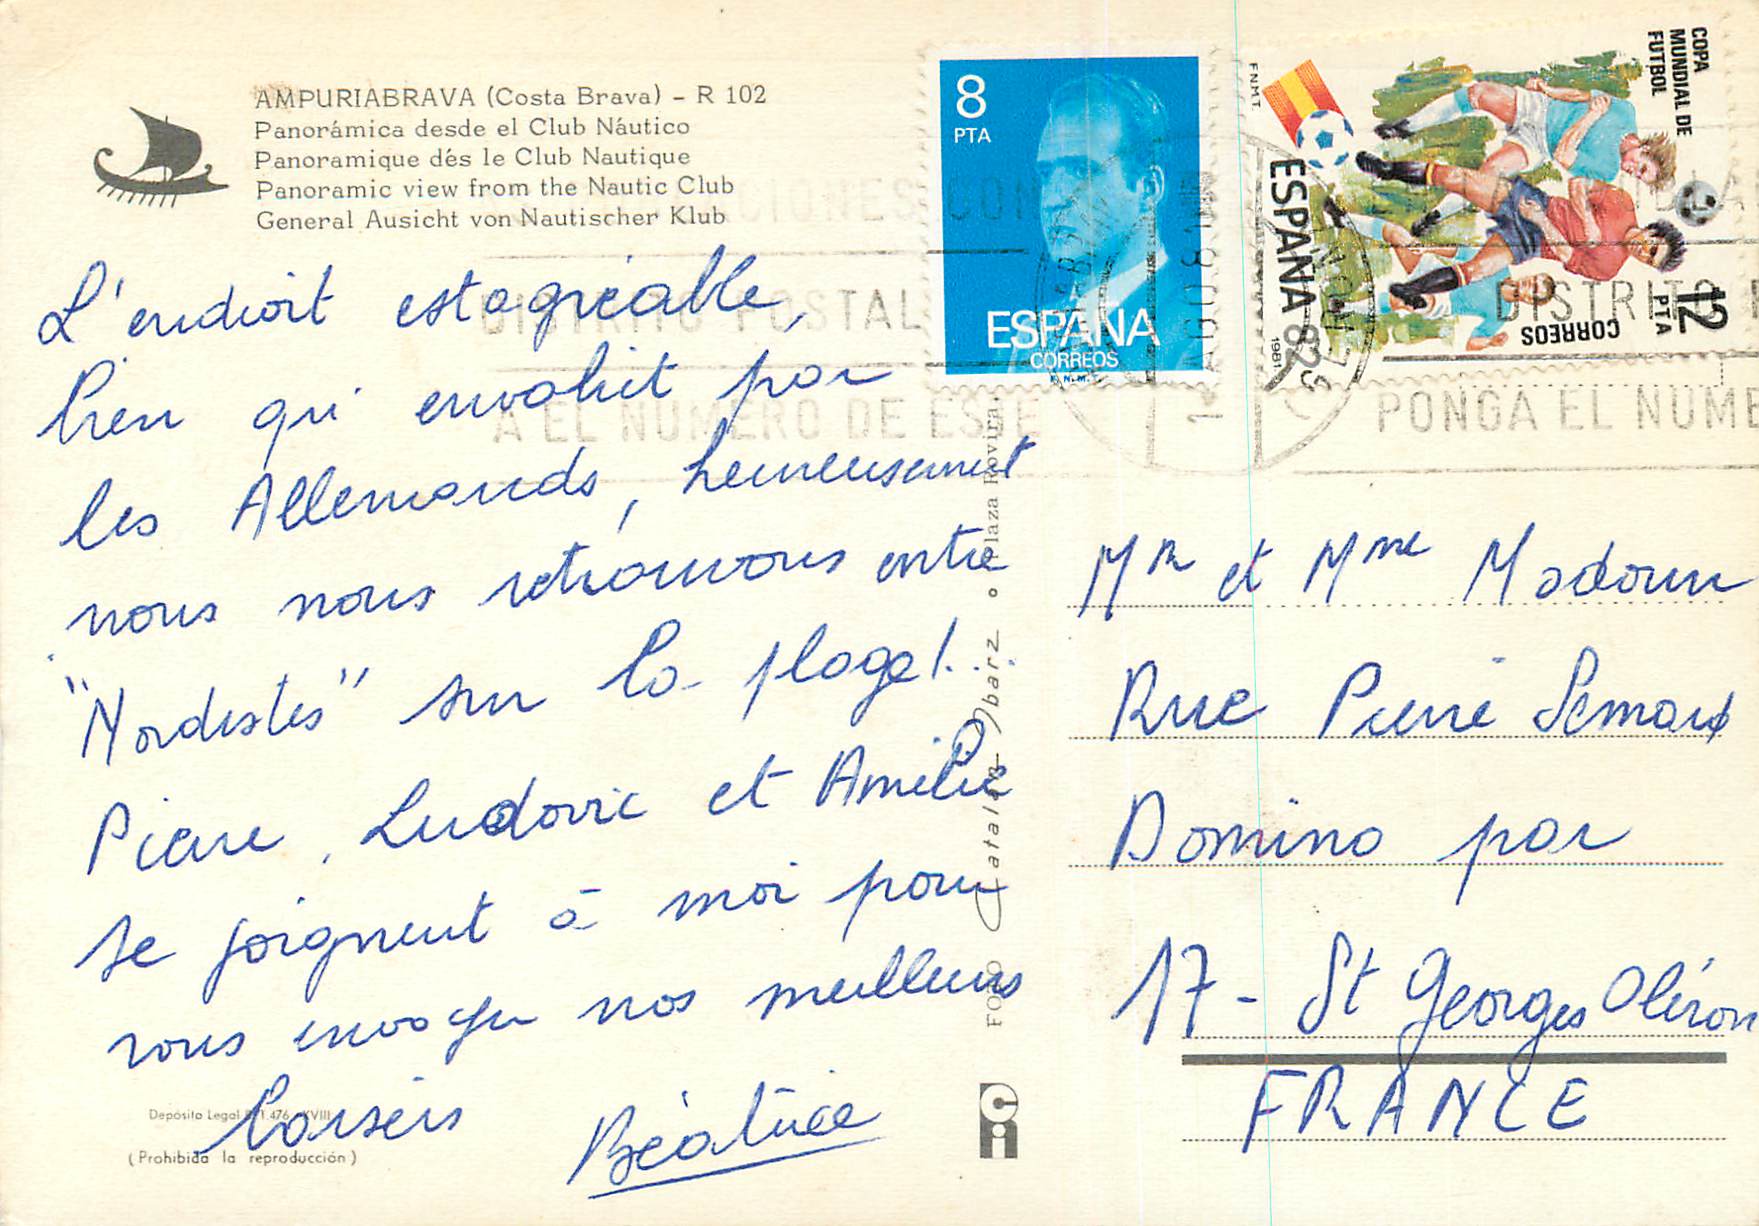 AMPURIABRAVA (Costa Brava) - R 102
Panorámica desde el Club Náutico
Panoramique dés le Club Nautique
Panoramic view from the Nautic Club
General Ausicht von Nautischer Klub
L'endroit est agréable,
bien qu'envahit par
les Allemands, heureusement
nous nous retrouvons entre
"Nordistes" sur la plage!...
Pierre, Ludovic et Amélie
se joignent à moi pour
vous envoyer nos meilleurs
baisers Béatrice
Depósito Legal B. 1.476 - XVIII
(Prohibida la reproducción)
FOTO Catalán Ibarz o Plaza Rovira
8
PTA
ESPAÑA
CORREOS
COPA
MUNDIAL DE
FUTBOL
F.N.M.T.
ESPAÑA 82
1981
CORREOS
12
PTA
CIONES CON
DISTRITO POSTAL
A EL NUMERO DE ESTE
DISTRITO
PONGA EL NUME
Mr et Mme Madoun
Rue Pierre Semard
Domino par
17 - St Georges Oléron
FRANCE